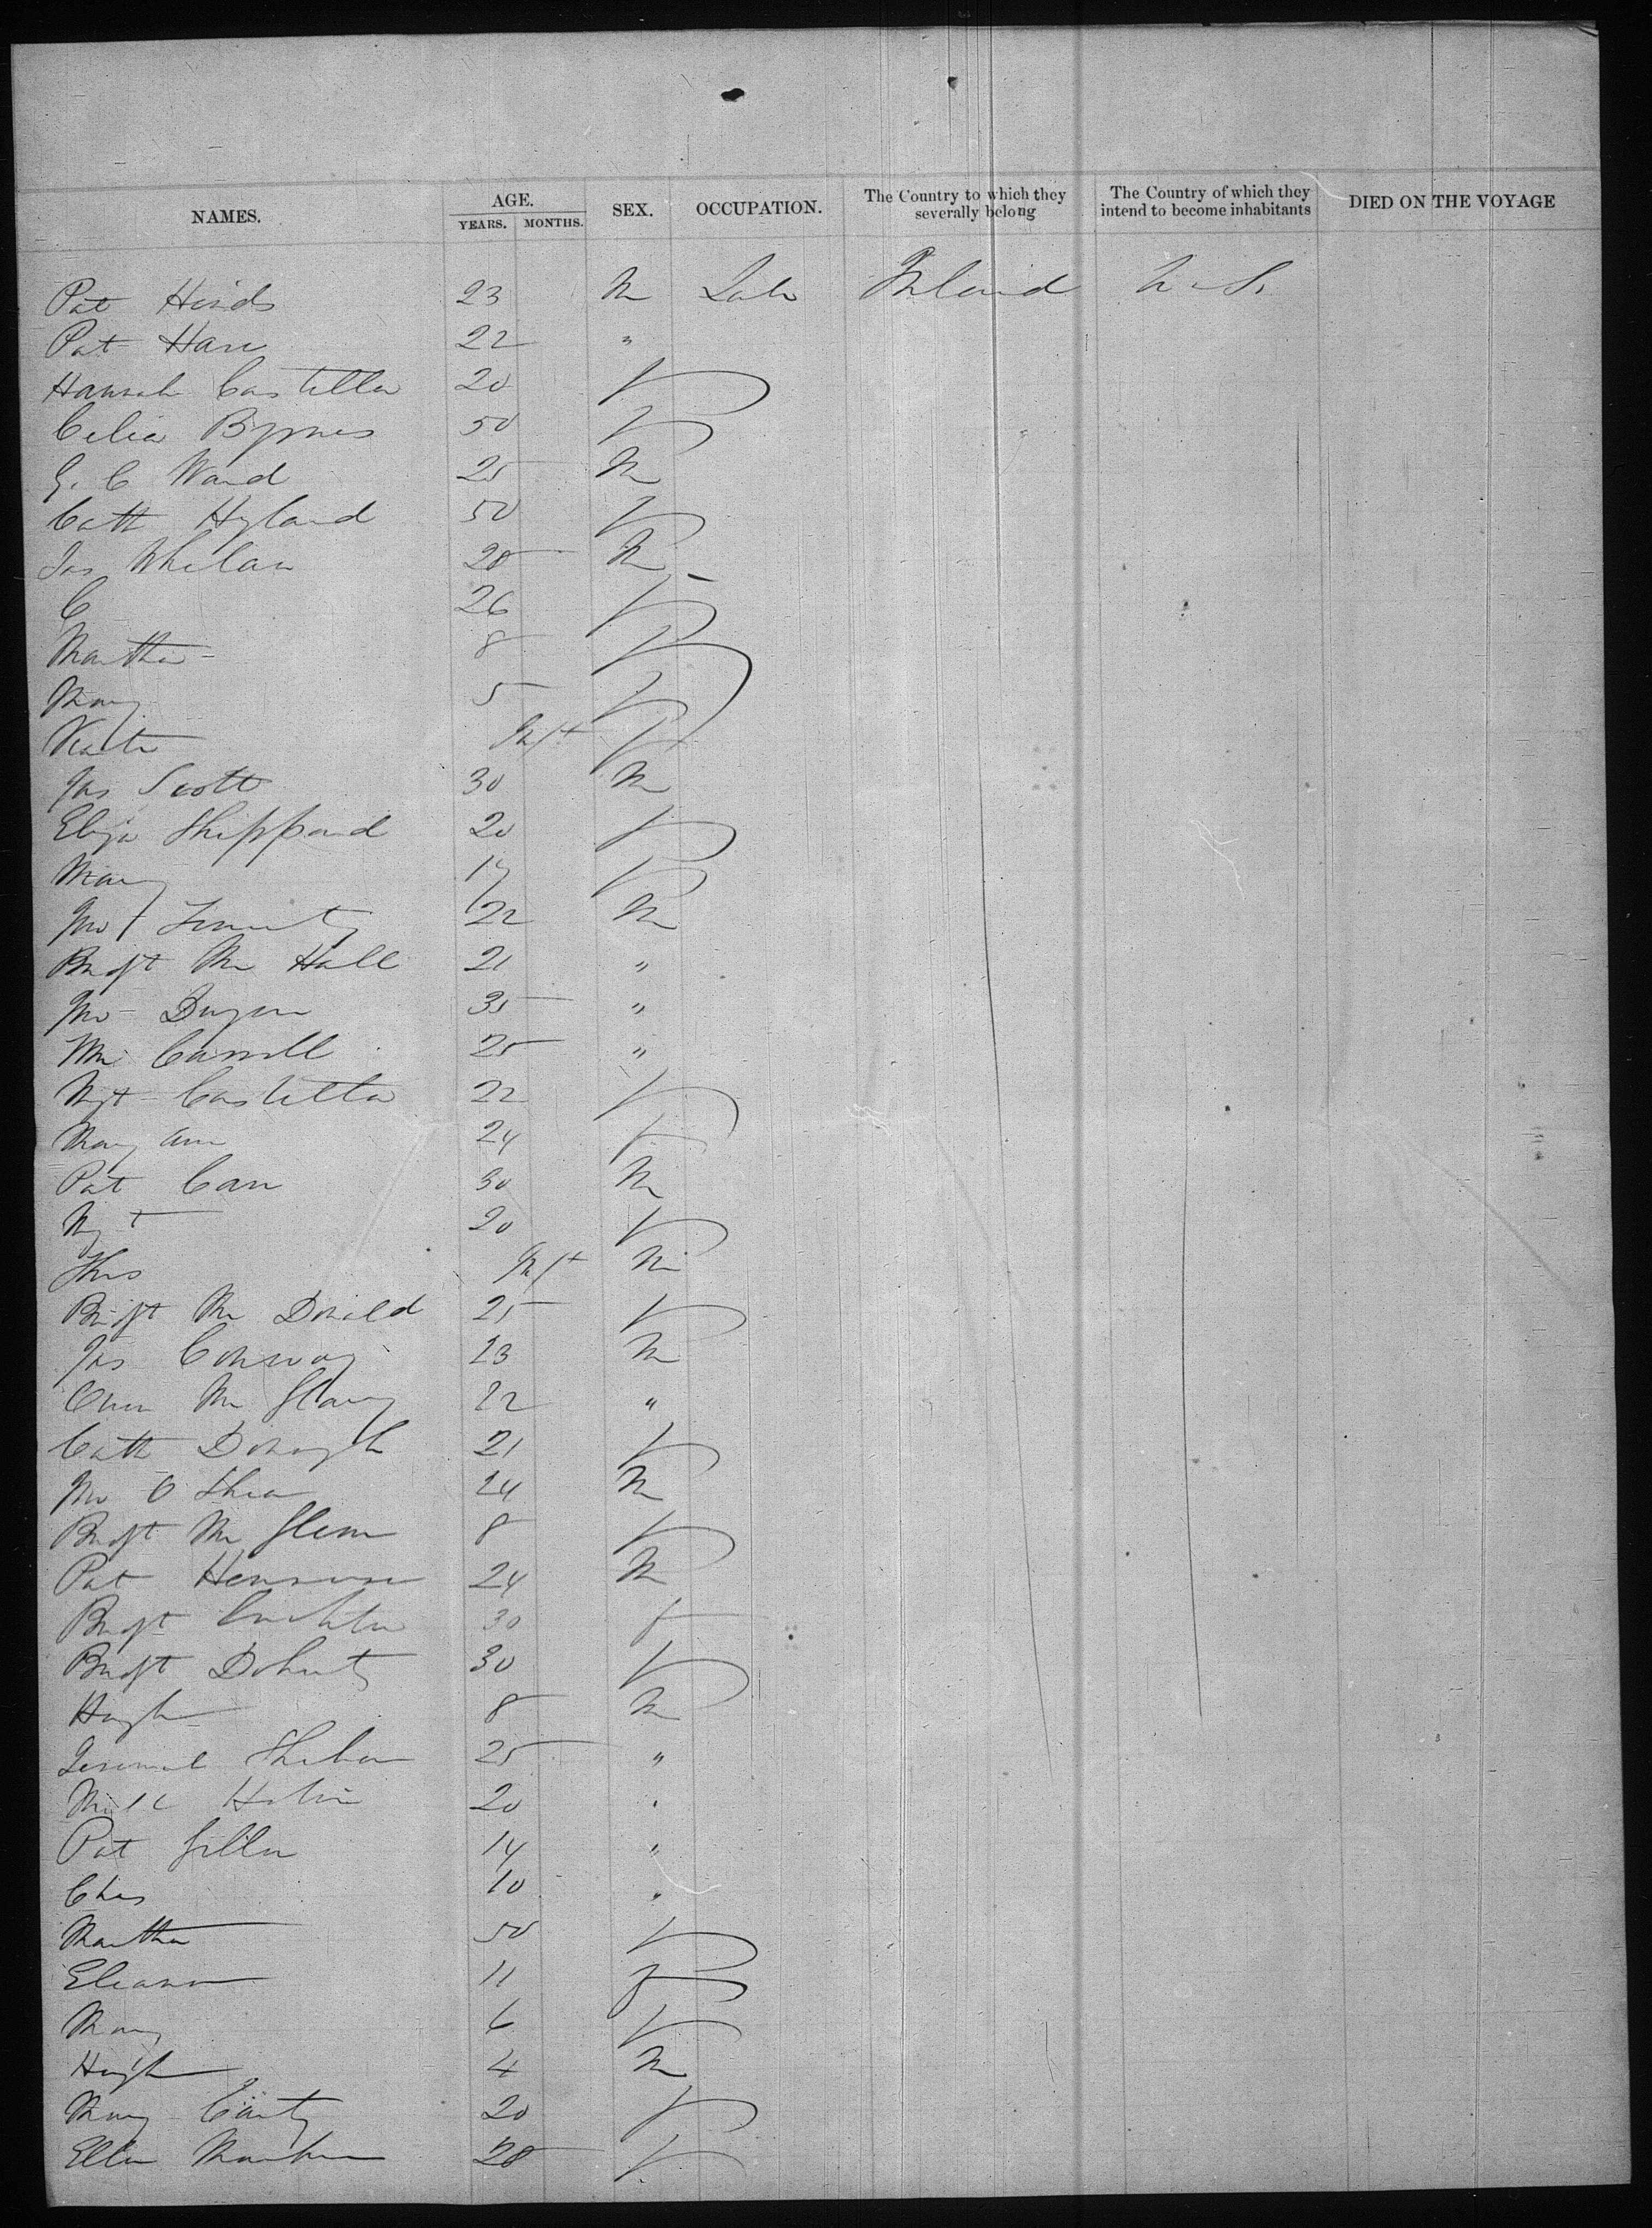 NAMES. AGE. SEX. OCCUPATION. The Country to which they severally belong The Country of which they intend to become inhabitants DIED ON THE VOYAGE
YEARS. MONTHS.
Pat Hinds 23 M Lab Ireland U.S.
Pat Hare 22 "
Hannah Costello 20 F
Celia Byrnes 50 F
G. C Ward 25 M
Cath Hyland 50 F
Jas Whelan 28 M
C 26 F
Martha 8 F
Mary 5 F
Kate Inft F
Jas Scott 30 M
Eliza Sheppard 20 F
Mary 17 F
Jno 22 M
Bridgt Mc Hall 21 "
Jno Dugan 35 "
Wm Carroll 25 "
Mgt Costello 22 F
Mary Ann 24 F
Pat Carr 30 M
Mgt 20 F
Thos Inft M
Bridgt Mc Donald 25 F
Jas Conway 23 M
Owen Mc 22 "
Cath Donagh 21 F
Jno O Shea 24 M
Bridgt Mc Glenn 8 F
Pat 24 M
Bridgt 30 F
Bridgt Doherty 30 F
Hugh 8 M
25 "
20 "
Pat Gillen 14 "
Chas 10 "
Martha 50 F
Eleanor 11 F
Mary 6 F
Hugh 4 M
Mary Carty 20 F
Ellen 28 F